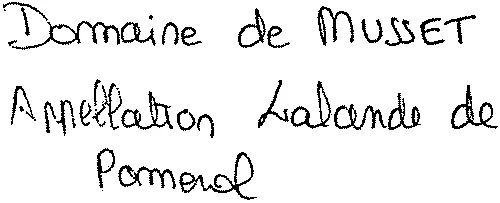 Domaine de MUSSET
Appellation Lalande de
Pomerol